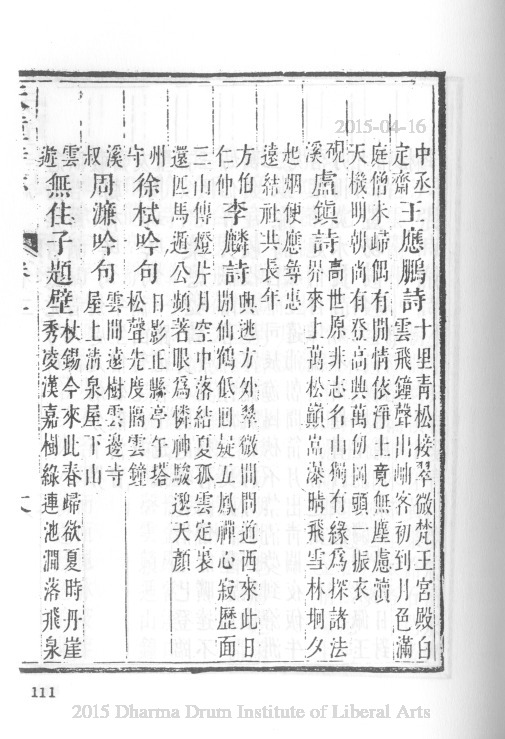 2015-04-16
中丞定齋王應鵬詩十里青松接翠微梵王宮殿白
雲飛鐘聲出岫客初到月色滿
庭僧未歸偶有閒情依淨土竟無塵慮瀆
天機明朝尚有登高興萬仞岡頭一振衣
硯溪盧鎮詩高世原非志名山獨有緣為探諸法
界來上萬松巔嵓瀑晴飛雪林坰夕
起烟便應尋惠
遠結社共長年
方伯仁仲李麟詩興逃方外翠微間問道西來此日
閒仙鶴低迴疑五鳳禪心寂歷面
三山傳燈片月空中落結夏孤雲定裏
還匹馬遁公頻著眼為憐神駿邈天顏
州守徐栻吟句日影正縣亭午塔
松聲先度隔雲鐘
溪叔周濂吟句雲間遠樹雲邊寺
屋上清泉屋下山
雲遊無住子題壁杖錫今來此春歸欲夏時丹崖
秀凌漢嘉樹綠連池澗落飛泉
111
2015 Dharma Drum Institute of Liberal Arts